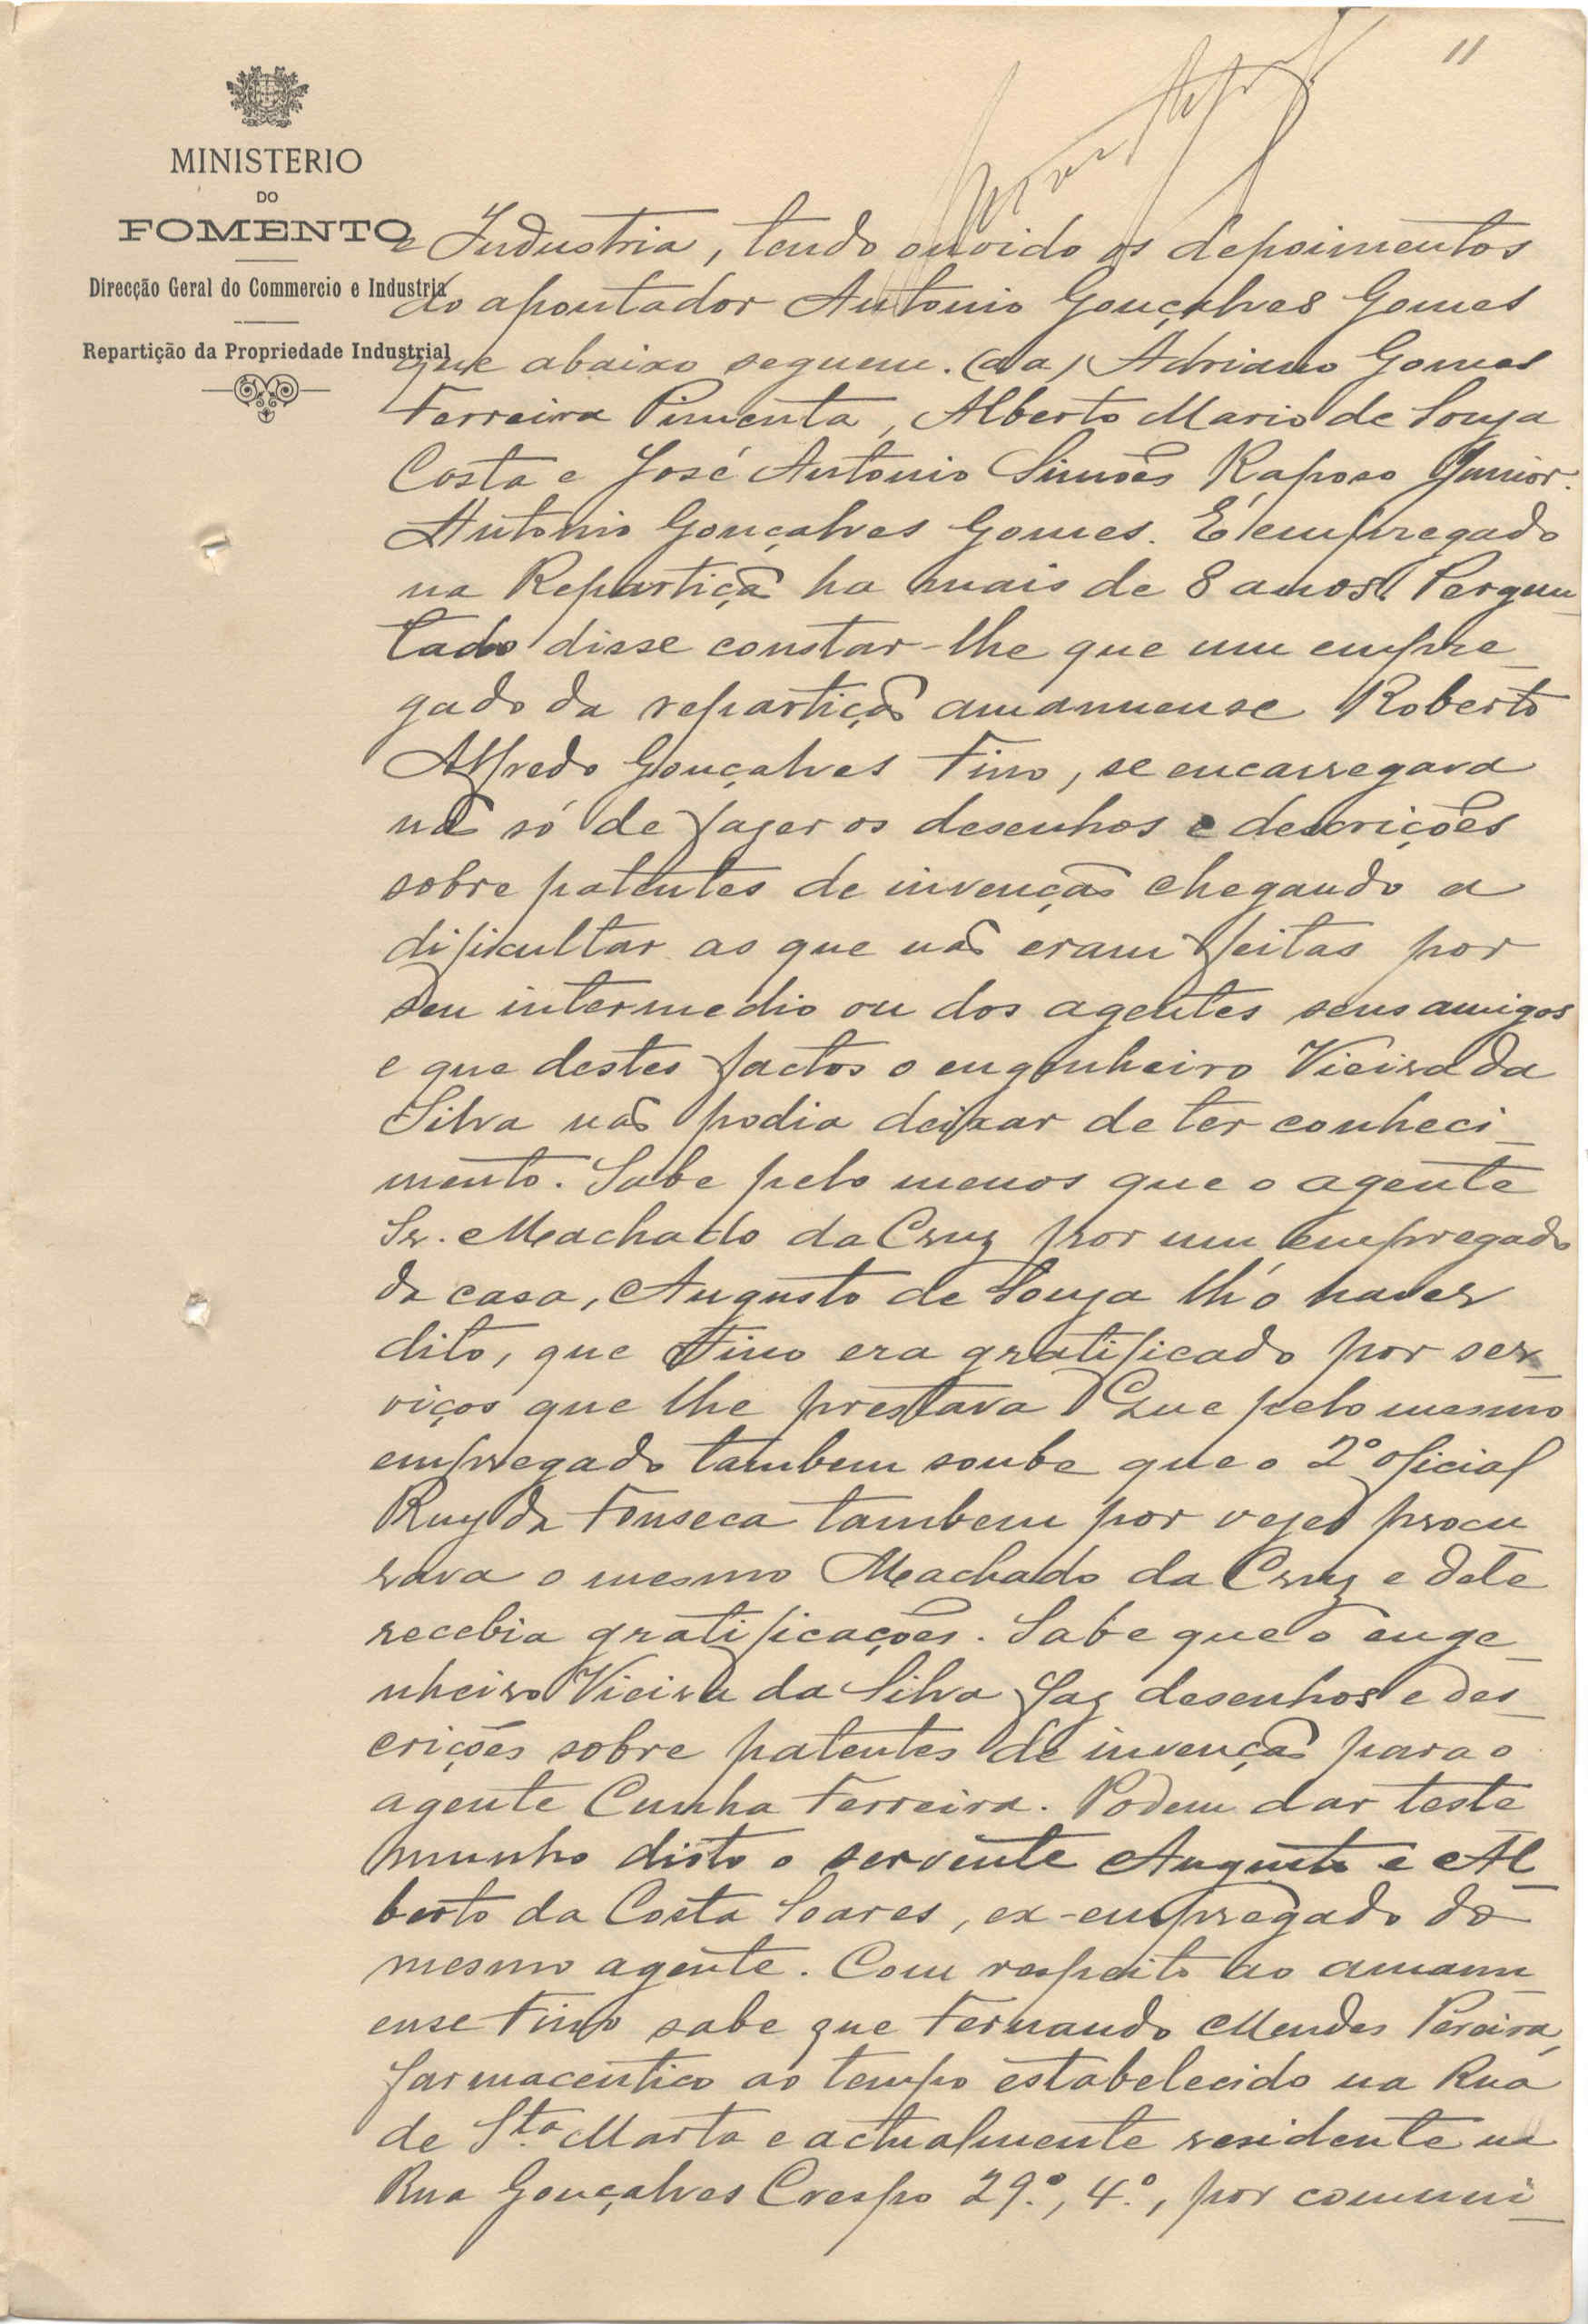 11
MINISTERIO
DO
FOMENTO
Direcção Geral do Commercio e Industria
Repartição da Propriedade Industrial
e Industria, tendo ouvido os depoimentos
do apontador Antonio Gonçalves Gomes
que abaixo seguem. (aa) Adriano Gomes
Ferreira Pimenta, Alberto Mario de Souza
Costa e José Antonio Simões Raposo Junior.
Antonio Gonçalves Gomes. É empregado
na Repartição ha mais de 8 anos. Pergun_
tado disse constar-lhe que um empre_
gado da repartição amanuense Roberto
Alfredo Gonçalves Fino, se encarregava
não só de fazer os desenhos e descrições
sobre patentes de invenção chegando a
dificultar as que não eram feitas por
seu intermedio ou dos agentes seus amigos
e que destes factos o engenheiro Vieira da
Silva não podia deixar de ter conheci_
mento. Sabe pelo menos que o agente
Sr. Machado da Cruz por um empregado
da casa, Augusto de Souza lh'o haver
dito, que Fino era gratificado por ser_
viços que lhe prestava. Que pelo mesmo
empregado tambem soube que o 2º oficial
Ruy da Fonseca tambem por vezes procu
rava o mesmo Machado da Cruz e dele
recebia gratificações. Sabe que o enge_
nheiro Vieira da Silva faz desenhos e des_
crições sobre patentes de invenção para o
agente Cunha Ferreira. Podem dar teste
munho disto o servente Augusto e Al_
berto da Costa Soares, ex-empregado do
mesmo agente. Com respeito ao amanu_
ense Fino sabe que Fernando Mendes Pereira,
farmaceutico ao tempo estabelecido na Rua
de Sta Marta e actualmente residente na
Rua Gonçalves Crespo 29.º, 4.º, por communi_